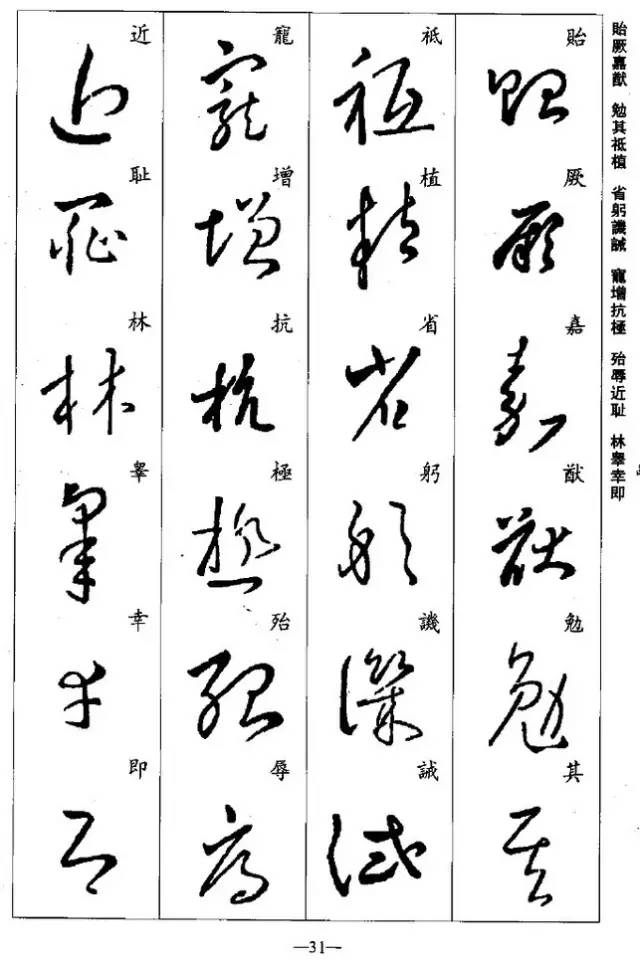 貽厥嘉猷 勉其祗植 省躬譏誡 寵增抗極 殆辱近耻 林睾幸即
貽厥嘉猷勉其
祗植省躬譏誡
寵增抗極殆辱
近耻林睾幸即
—31—